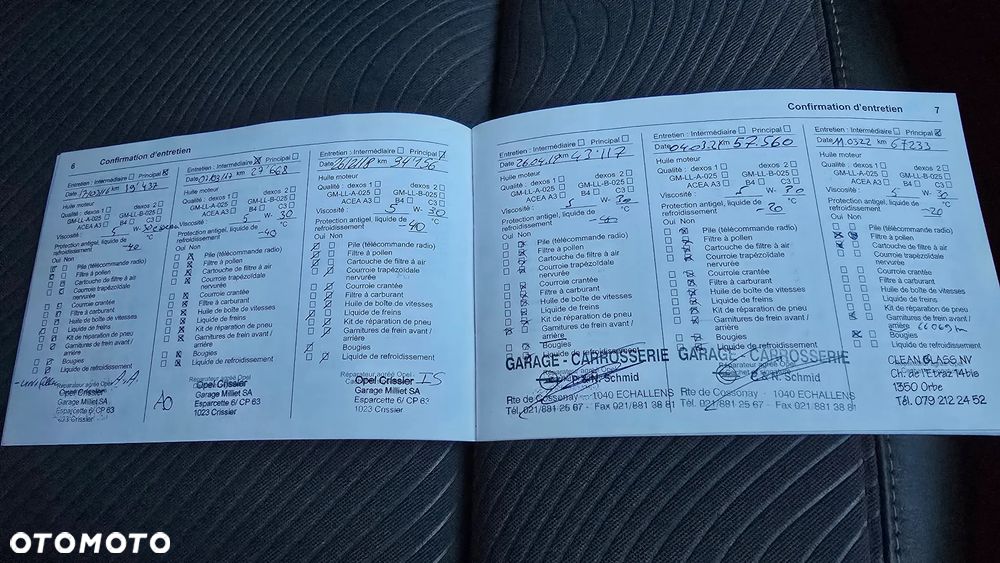 6 Confirmation d'entretien
Entretien : Intermédiaire Principal
km 19'437
Huile moteur
Qualité : dexos 1 dexos 2
GM-LL-A-025 GM-LL-B-025
ACEA A3 B4 C3
Viscosité : 5 W- 30
Protection antigel, liquide de
refroidissement -40 °C
Oui Non
Pile (télécommande radio)
Filtre à pollen
Cartouche de filtre à air
Courroie trapézoïdale
nervurée
Courroie crantée
Filtre à carburant
Huile de boîte de vitesses
Liquide de freins
Kit de réparation de pneu
Garnitures de frein avant /
arrière
Bougies
Liquide de refroidissement
Réparateur agréé Opel
Opel Crissier
Garage Milliet SA
Esparcette 6/ CP 63
1023 Crissier
Entretien : Intermédiaire Principal
Date km 27'668
Huile moteur
Qualité : dexos 1 dexos 2
GM-LL-A-025 GM-LL-B-025
ACEA A3 B4 C3
Viscosité : 5 W- 30
Protection antigel, liquide de
refroidissement -40 °C
Oui Non
Pile (télécommande radio)
Filtre à pollen
Cartouche de filtre à air
Courroie trapézoïdale
nervurée
Courroie crantée
Filtre à carburant
Huile de boîte de vitesses
Liquide de freins
Kit de réparation de pneu
Garnitures de frein avant /
arrière
Bougies
Liquide de refroidissement
Réparateur agréé Opel
AO
Opel Crissier
Garage Milliet SA
Esparcette 6/ CP 63
1023 Crissier
Entretien : Intermédiaire Principal
Date km 34'156
Huile moteur
Qualité : dexos 1 dexos 2
GM-LL-A-025 GM-LL-B-025
ACEA A3 B4 C3
Viscosité : 5 W- 30
Protection antigel, liquide de
refroidissement -40 °C
Oui Non
Pile (télécommande radio)
Filtre à pollen
Cartouche de filtre à air
Courroie trapézoïdale
nervurée
Courroie crantée
Filtre à carburant
Huile de boîte de vitesses
Liquide de freins
Kit de réparation de pneu
Garnitures de frein avant /
arrière
Bougies
Liquide de refroidissement
Réparateur agréé Opel
Opel Crissier IS
Garage Milliet SA
Esparcette 6/ CP 63
1023 Crissier
Confirmation d'entretien 7
Entretien : Intermédiaire Principal
Date 26.04.19 km 43.117
Huile moteur
Qualité : dexos 1 dexos 2
GM-LL-A-025 GM-LL-B-025
ACEA A3 B4 C3
Viscosité : 5 W- 30
Protection antigel, liquide de
refroidissement -40 °C
Oui Non
Pile (télécommande radio)
Filtre à pollen
Cartouche de filtre à air
Courroie trapézoïdale
nervurée
Courroie crantée
Filtre à carburant
Huile de boîte de vitesses
Liquide de freins
Kit de réparation de pneu
Garnitures de frein avant /
arrière
Bougies
Liquide de refroidissement
GARAGE - CARROSSERIE
& N. Schmid
Rte de Cossonay - 1040 ECHALLENS
Tél. 021/881 25 67 - Fax 021/881 38 81
Entretien : Intermédiaire Principal
Date 04.03.21 km 57.560
Huile moteur
Qualité : dexos 1 dexos 2
GM-LL-A-025 GM-LL-B-025
ACEA A3 B4 C3
Viscosité : 5 W- 30
Protection antigel, liquide de
refroidissement 20 °C
Oui Non
Pile (télécommande radio)
Filtre à pollen
Cartouche de filtre à air
Courroie trapézoïdale
nervurée
Courroie crantée
Filtre à carburant
Huile de boîte de vitesses
Liquide de freins
Kit de réparation de pneu
Garnitures de frein avant /
arrière
Bougies
Liquide de refroidissement
GARAGE - CARROSSERIE
& N. Schmid
Rte de Cossonay - 1040 ECHALLENS
Tél. 021/881 25 67 - Fax 021/881 38 81
Entretien : Intermédiaire Principal
Date 11.0322 km 67233
Huile moteur
Qualité : dexos 1 dexos 2
GM-LL-A-025 GM-LL-B-025
ACEA A3 B4 C3
Viscosité : 5 W- 30
Protection antigel, liquide de
refroidissement -20 °C
Oui Non
Pile (télécommande radio)
Filtre à pollen
Cartouche de filtre à air
Courroie trapézoïdale
nervurée
Courroie crantée
Filtre à carburant
Huile de boîte de vitesses
Liquide de freins
Kit de réparation de pneu
Garnitures de frein avant /
arrière
Bougies
Liquide de refroidissement
CLEAN GLASS NV
Ch. de l'Etraz 14bis
1350 Orbe
Tél. 079 212 24 52
OTOMOTO